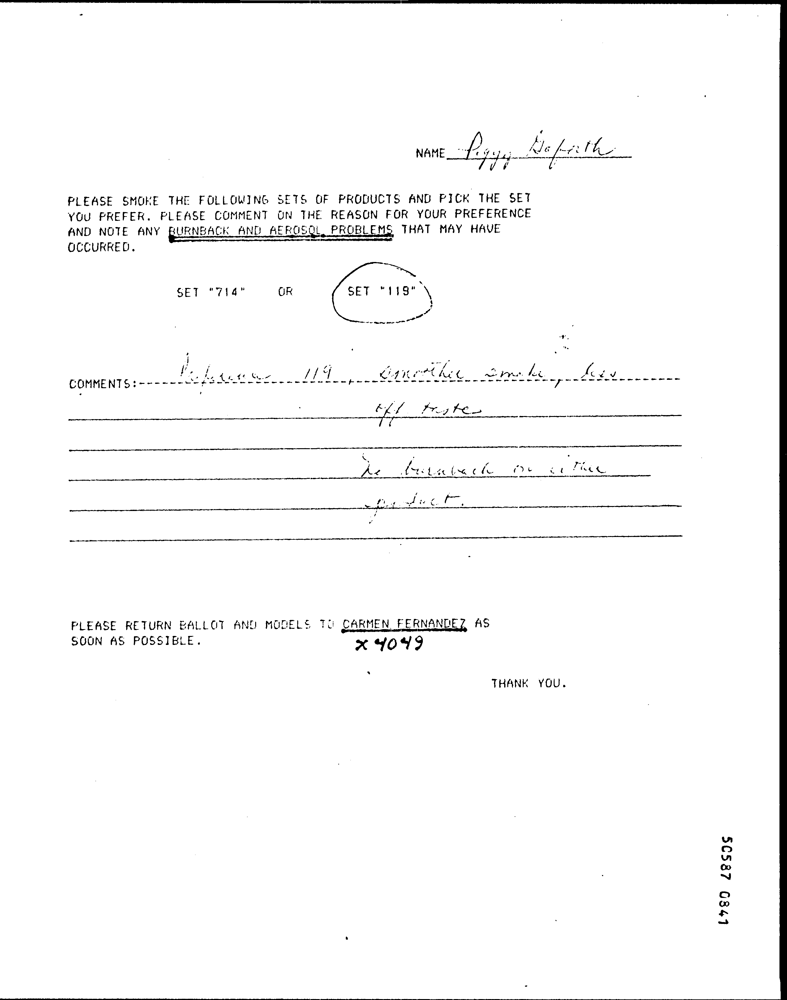 NAME Peggy Goforth
PLEASE SMOKE THE FOLLOWING SETS OF PRODUCTS AND PICK THE SET
YOU PREFER. PLEASE COMMENT ON THE REASON FOR YOUR PREFERENCE
AND NOTE ANY BURNBACK AND AEROSOL PROBLEMS THAT MAY HAVE
OCCURRED.
SET "714" OR SET "119"
COMMENTS:---- 119, smoother smoke, less
off taste
No burnback on either
product.
PLEASE RETURN BALLOT AND MODELS TO CARMEN FERNANDEZ AS
SOON AS POSSIBLE.
x 4049
THANK YOU.
50587 0841